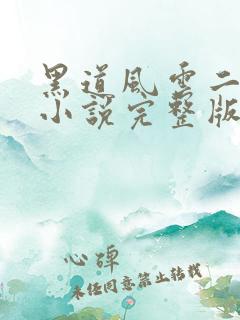 黑道风云二
小说完整版
心碑
未经同意禁止转载